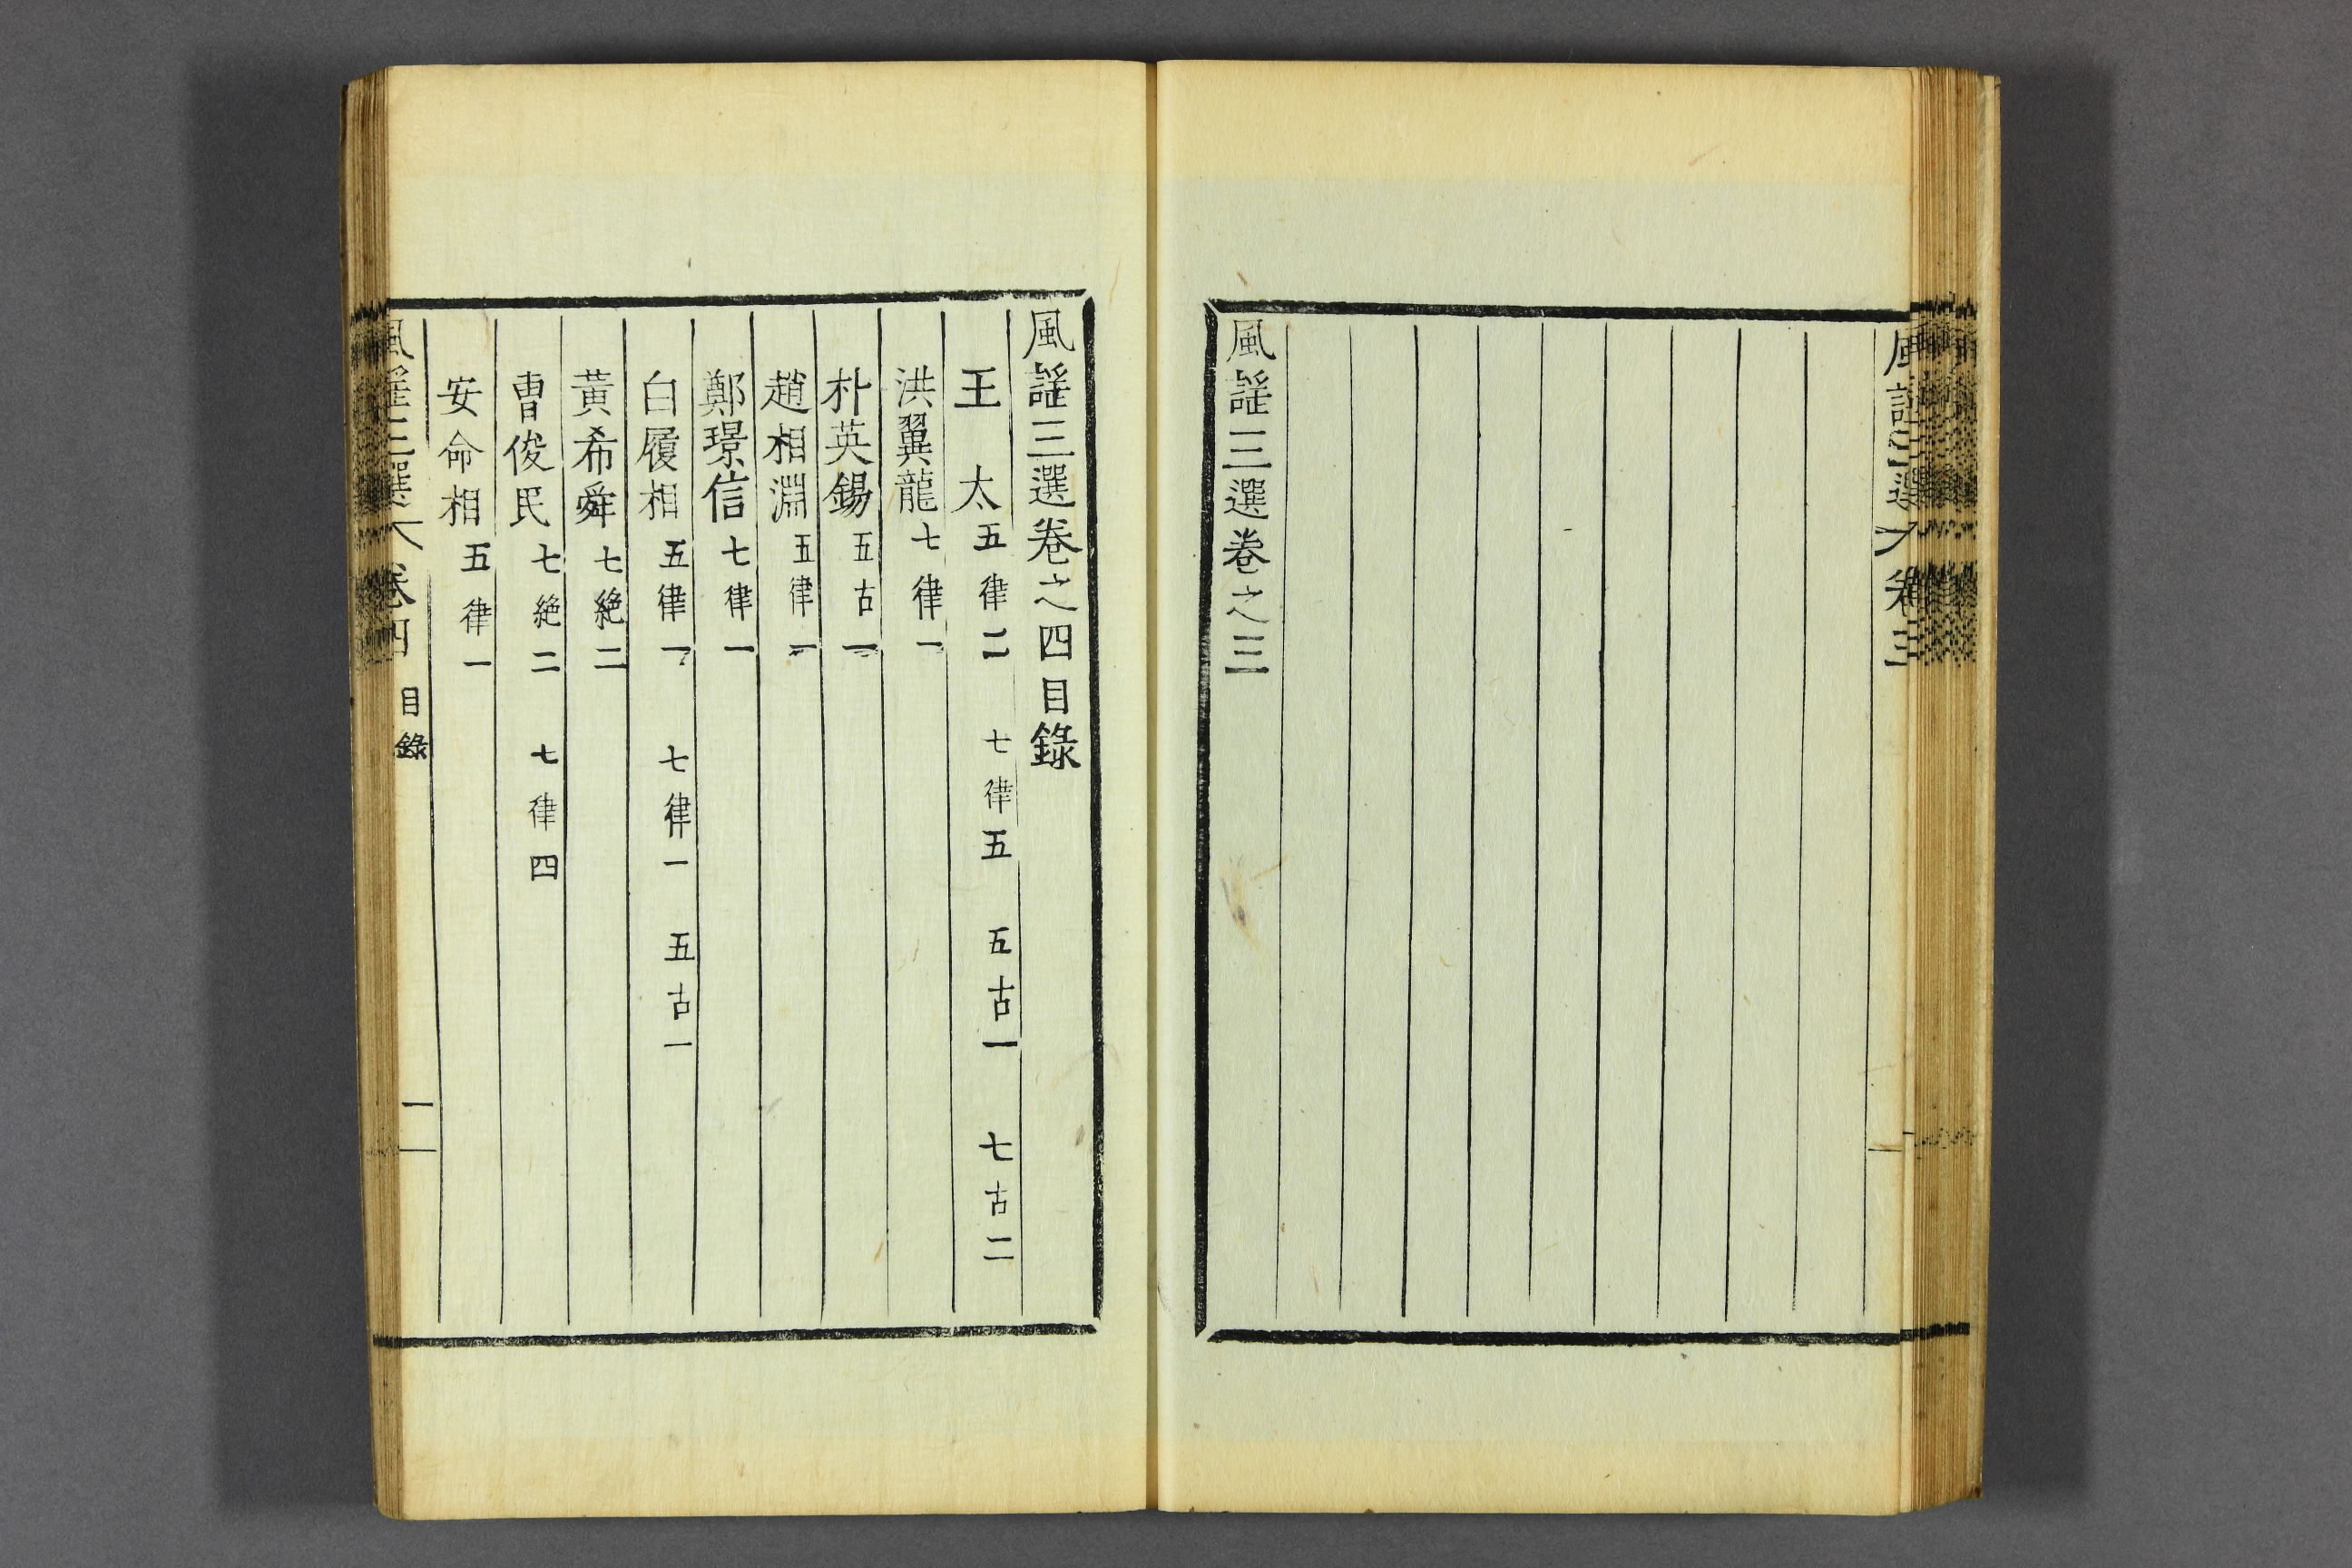 風謠三選 卷三
風謠三選卷之三
風謠三選卷之四目錄
王太 五律二 七律五 五古一 七古二
洪翼龍 七律一
朴英錫 五古一
趙相淵 五律一
鄭璟信 七律一
白履相 五律一 七律一 五古一
黃希舜 七絶二
曺俊民 七絶二 七律四
安命相 五律一
風謠三選 卷四 目錄 一